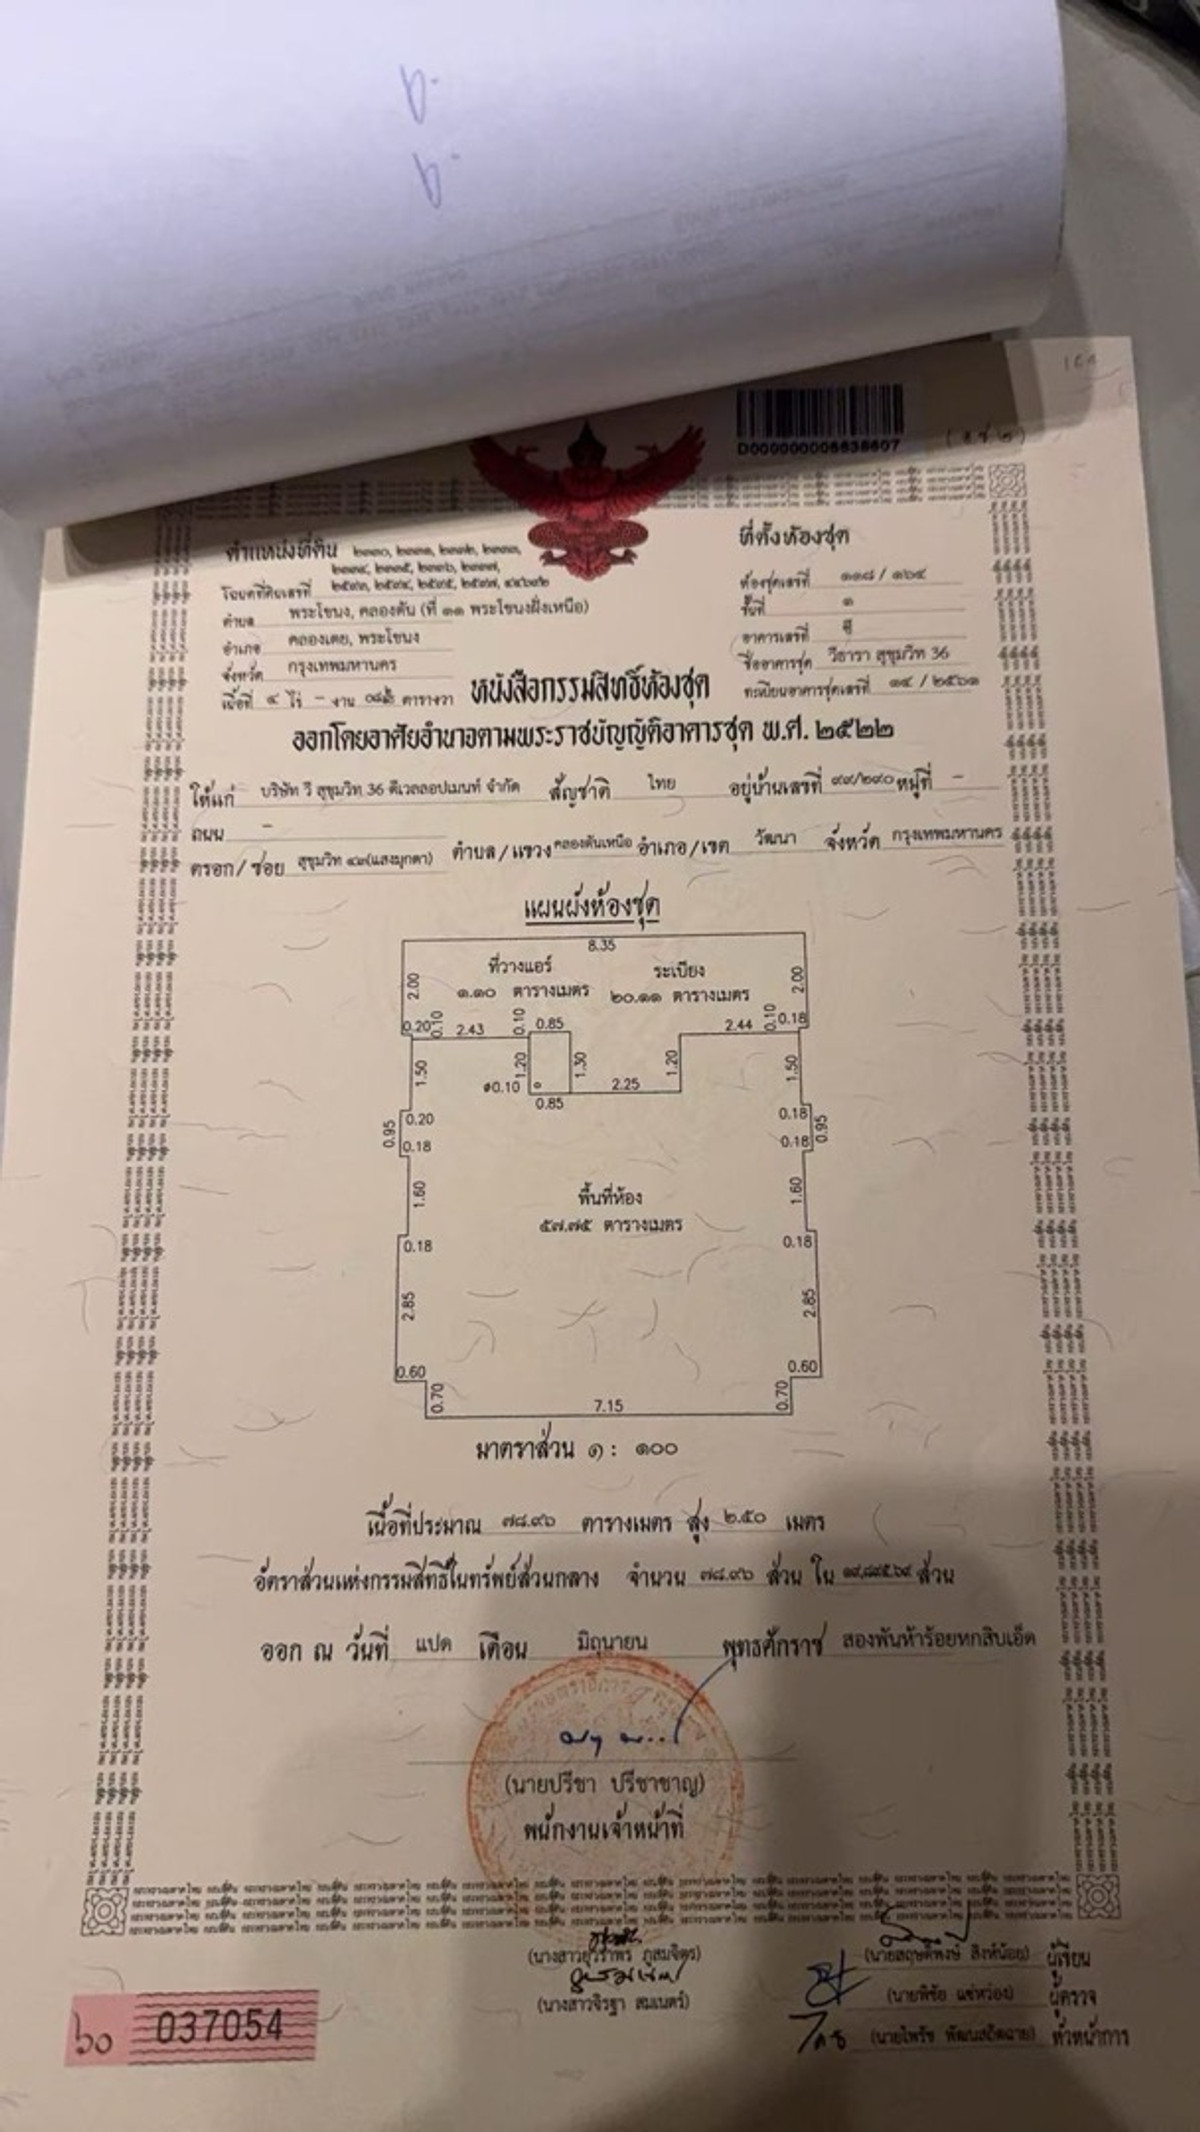 D000000006638607
(อ.ช.๒)
ตำแหน่งที่ดิน
โฉนดที่ดินเลขที่
ตำบล พระโขนง, คลองตัน (ที่ ๑๑ พระโขนงฝั่งเหนือ)
อำเภอ คลองเตย, พระโขนง
จังหวัด กรุงเทพมหานคร
เนื้อที่ ๔ ไร่ - งาน ตารางวา
ที่ตั้งห้องชุด
ห้องชุดเลขที่ ๑๑๘ / ๑๖๔
ชั้นที่ ๑
อาคารเลขที่ ซี
ชื่ออาคารชุด วีธารา สุขุมวิท 36
ทะเบียนอาคารชุดเลขที่ ๑๔ / ๒๕๖๑
หนังสือกรรมสิทธิ์ห้องชุด
ออกโดยอาศัยอำนาจตามพระราชบัญญัติอาคารชุด พ.ศ. ๒๕๒๒
ให้แก่ บริษัท วี สุขุมวิท 36 ดีเวลลอปเมนท์ จำกัด สัญชาติ ไทย อยู่บ้านเลขที่ ๙๙/๒๙๐ หมู่ที่ -
ถนน -
ตรอก/ซอย สุขุมวิท ๔๓(แสงมุกดา) ตำบล/แขวง คลองตันเหนือ อำเภอ/เขต วัฒนา จังหวัด กรุงเทพมหานคร
แผนผังห้องชุด
8.35
ที่วางแอร์ ระเบียง
๑.๑๐ ตารางเมตร ๒๐.๑๑ ตารางเมตร
2.00 2.00
0.20 0.10 2.43 0.10 0.85 2.44 0.10 0.18
1.50 1.20 1.30 1.20 1.50
ø0.10 2.25
0.85
0.20 0.18
0.95 0.95
0.18 0.18
1.60 1.60
พื้นที่ห้อง
๕๗.๗๕ ตารางเมตร
0.18 0.18
2.85 2.85
0.60 0.60
0.70 0.70
7.15
มาตราส่วน ๑ : ๑๐๐
เนื้อที่ประมาณ ๗๘.๙๖ ตารางเมตร สูง ๒.๕๐ เมตร
อัตราส่วนแห่งกรรมสิทธิ์ในทรัพย์ส่วนกลาง จำนวน ๗๘.๙๖ ส่วน ใน ๑๙,๘๙๕.๖๙ ส่วน
ออก ณ วันที่ แปด เดือน มิถุนายน พุทธศักราช สองพันห้าร้อยหกสิบเอ็ด
(นายปรีชา ปรีชาชาญ)
พนักงานเจ้าหน้าที่
(นางสาวยุวราพร ภูสมจิตร)
(นางสาวจิรฐา สมเนตร์)
(นายสฤษดิ์พงษ์ สิงห์น้อย) ผู้เขียน
(นายพิชัย แซ่หว่อง) ผู้ตรวจ
(นายไพรัช พัฒนสถิตฉาย) หัวหน้าการ
๖๐ 037054